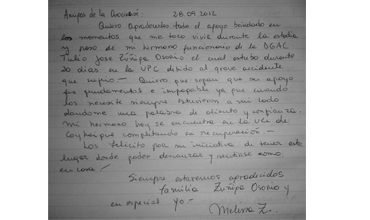 Amigos de la Asociación 28.09.2012
Quiero Agradecerles todo el apoyo brindado en
los momentos que me toco vivir durante la estadía
y paso de mi hermano funcionario de la DGAC
Tulio Jose Zúñiga Osorio el cual estubo durante
20 días en la UPC debido al grave accidente
que sufrio.- Quiero que sepan que su apoyo
fue fundamental e impagable ya que cuando
los necesite siempre estuvieron a mi lado
dandome una palabra de aliento y confianza.
Mi hermano hoy se encuentra en la
Coyhaique completando su recuperación.-
Los felicito por su iniciativa de tener este
lugar donde poder descansar y sentirse como
en casa.-
Siempre estaremos agradecidos
Familia Zuñiga Osorio y
en especial yo.- Melissa Z.